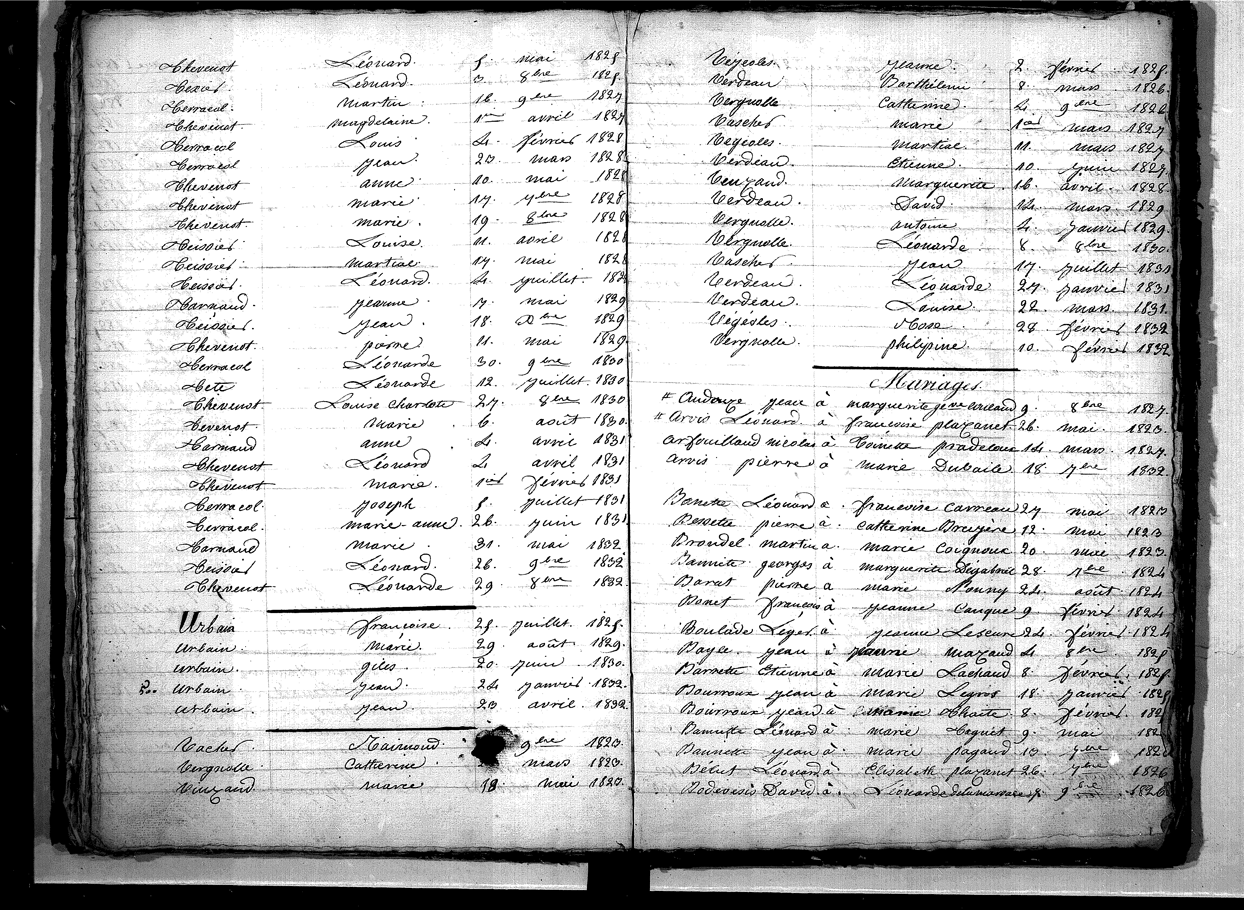 Thevenot Léonard. 5. mai 1825
Texier Léonard. 3. 8bre 1825.
Terracol martin. 16. 9bre 1827
Thevenot. magdelaine. 1er avril 1827
Terracol Louis. 4. février 1828
Terracol jean 23. mars 1828
Thevenot anne. 10. mai 1828
Thevenot marie. 17. 7bre 1828
Thevenot marie. 19. 8bre 1828
Teissier Louise. 11. avril 1828
Teissier. martial. 17. mai 1828
Teissier Léonard. 4. juillet. 182
Tarnaud. jeanne. 7. mai 1829
Teissier. jean. 18. Dbre 1829
Thevenot. 11. mai 1829
Terracol Léonarde 30. 9bre 1830
Tete Léonarde 12. juillet. 1830
Thevenot Louise Charlote 27. 8bre 1830
Tevenot. marie 6. août 1830.
Tarnaud anne 4. avril 1831
Thevenot Léonard 2 avril 1831
Thevenot marie. 1er février 1831
Terracol joseph 5. juillet 1831
Terracol. marie anne. 26. juin 1831
Tarnaud marie 31. mai 1832.
Teissier Léonard. 26. 9bre 1832
Thevenot Léonarde 29. 8bre 1832
Urbain françoise. 25. juillet. 1825.
urbain. marie. 29. août 1829.
urbain. giles. 20. juin 1830.
2.. urbain jean. 24 janvier 1832.
urbain. jean. 23 avril. 1832.
Vacher Raimond. 9bre 1823.
Vergnolle Catherine. mars 1823.
Veuzand marie 18 mai 1823.
Végeoles. jeanne. 2. février 1825.
Verdeau Barthélemi 8. mars 1826.
Vergnolle Catherine. 4 9bre 1826
Vascher marie 1er mars 1827
Vegeoles. martial 11. mars 1827
Verdeau. Etienne. 10. juin 1827.
Veuzand. marguerite. 16. avril. 1828
Verdeau. David. 14. mars 1829
Vergnolle. antoine 4. janvier 1829.
Vergnolle. Léonarde 8. 8bre 1830.
Vascher jean 17. juillet 1831
Verdeau. Léonarde 27. janvier 1831
Verdeau. Louise 22. mars. 1831.
Végéoles. Rose 28. février 1832
Vergnolle. philipine 10. février 1832
Mariages.
" Audouze jean à marguerite geve 9. 8bre 1827.
" Arvis Léonard. à françoise plazanet 26. mai. 1823.
arfouilland nicolas à Toinette pradeloux 14. mars. 1827.
arvis pierre à marie Dubaile 18 7bre 1832.
Banette Léonard à françoise Carreau 27 mai 1823
Bessette pierre à Catherine Bruyère 12. mai 1823
Brondel martin a. marie Coignoux 20. mai 1823.
Bannette georges à marguerite Digabriel 28 7bre 1824
Barat pierre à marie Nouny 24. août 1824
Bonet françois à jeanne Cauque 9 février 1824
Boulade Léger à jeanne Lescure 24. février. 1824
Bayle jean à jeanne mazaud 4 8bre 1825
Barnette Etienne à marie Lachaud 8 février. 1825.
Bourroux jean à marie Legros 18. janvier 1825
Bourroux jean à marie Thaite 8. février. 182
Bannette Léonard à marie Teguet 9. mai 182
Bannette jean à marie pagaud 13 7bre 182
Bélut Léonard à Elisabeth plazanet 26. 7bre 1826
Bodevesis David à. Léonarde delamarase 5. 9bre 1826